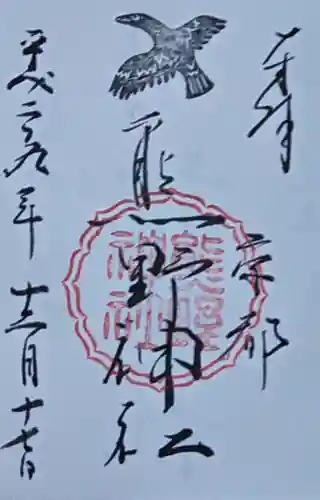 奉拝
京都
熊野神社
熊野神社
平成二九年十二月十七日